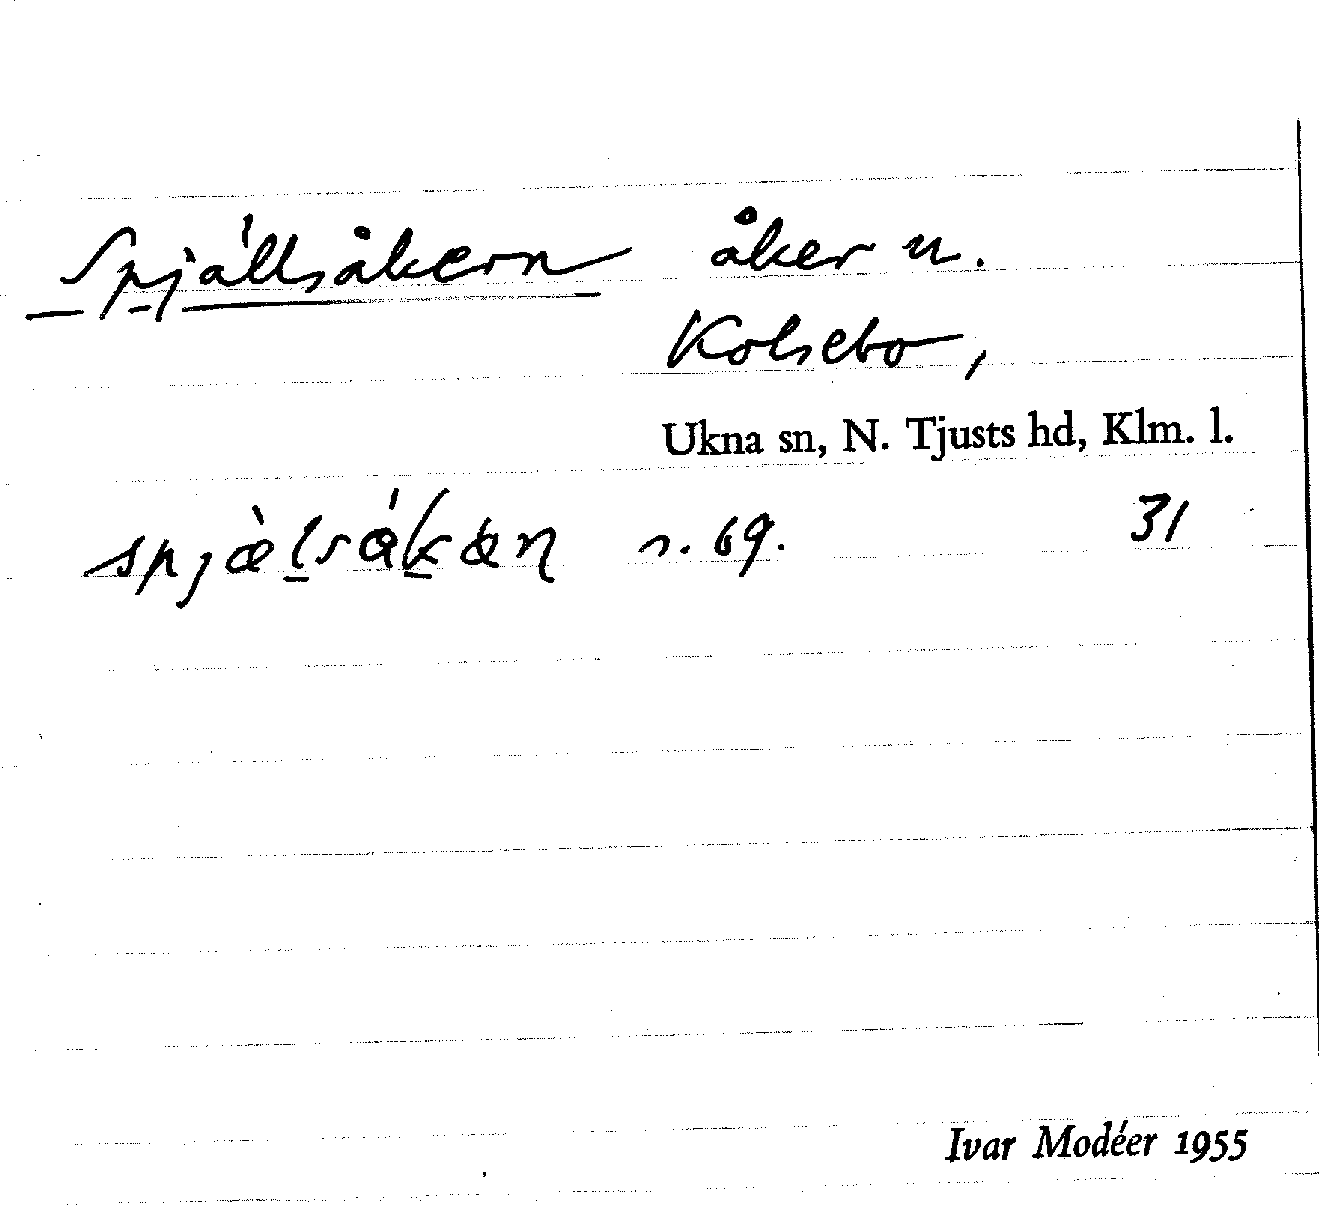 Spjällsåkern åker n.
Kolsebo,
Ukna sn, N. Tjusts hd, Klm. l.
s. 69. 31
Ivar Modéer 1955